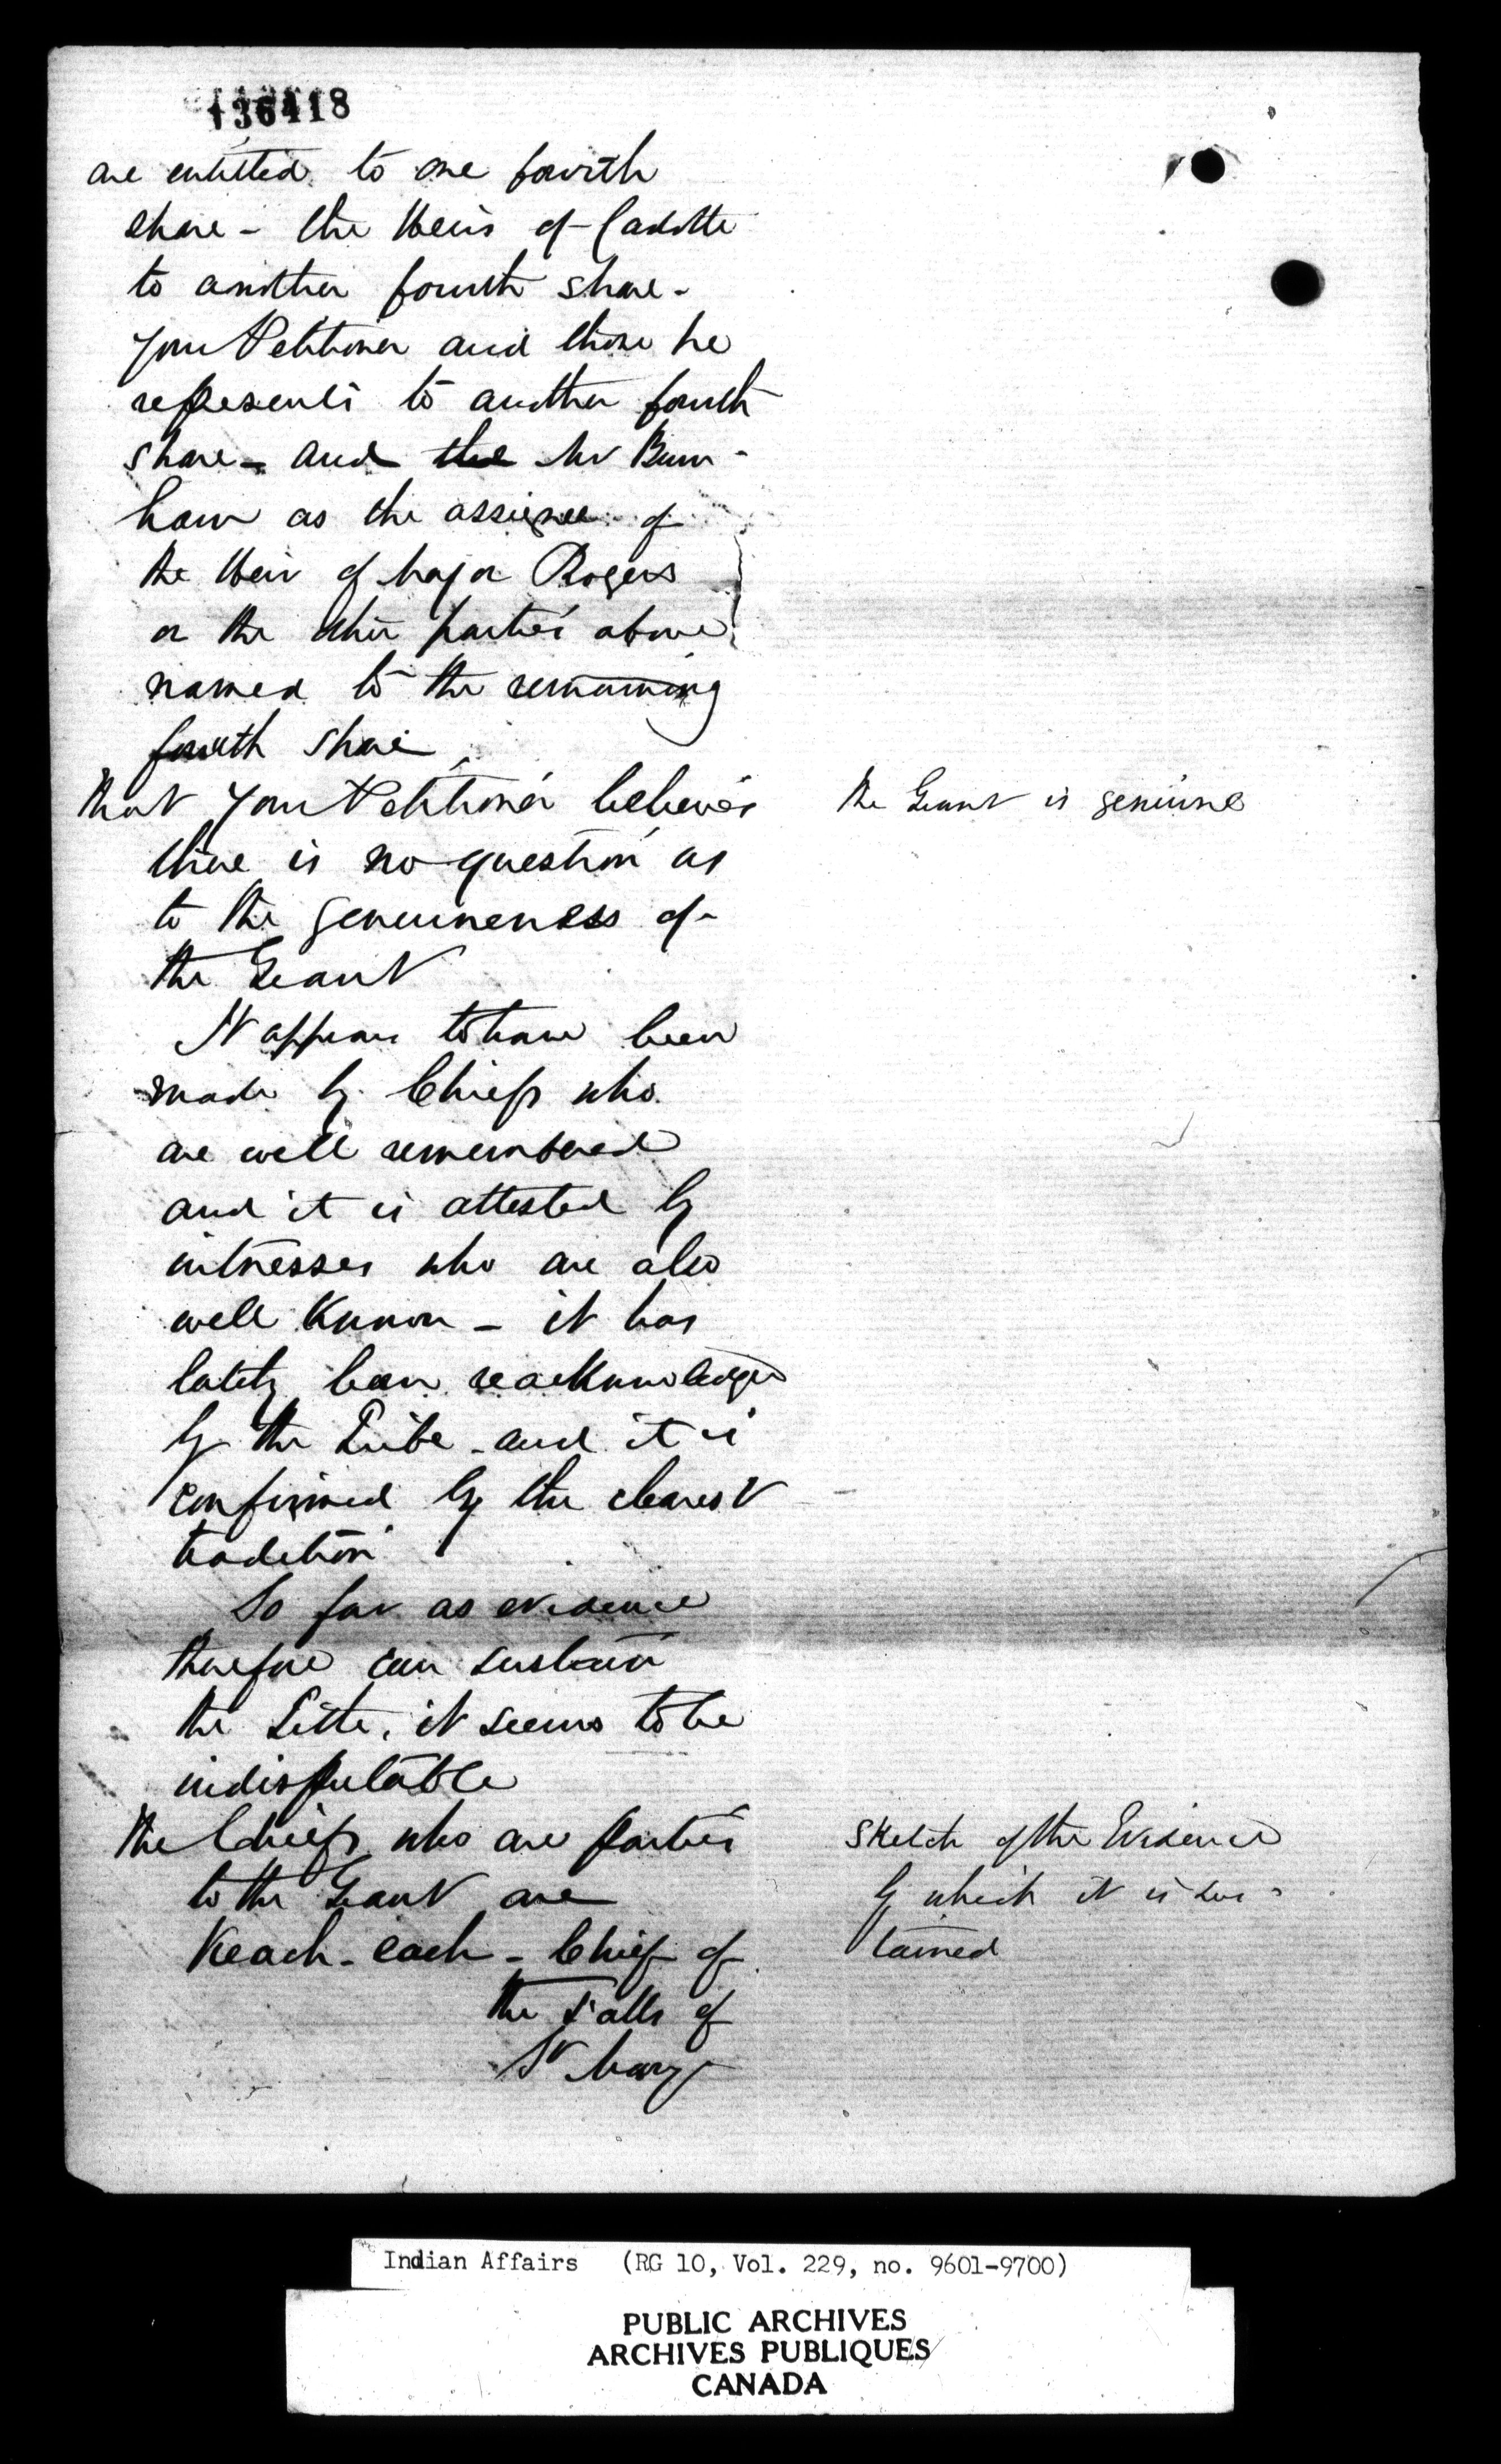 136418
are entitled to one fourth
share - the Heirs of Cadotte
to another fourth share -
your Petitioner and those he
represents to another fourth
share - and the Mr Burn-
ham as the assignee of
the Heir of Major Rogers
or the other parties above
named to the remaining
fourth share
that your Petitioner believes
the Grant is genuine
there is no question as
to the genuineness of
the Grant
It appears to have been
made by Chiefs who
are well remembered
and it is attested by
witnesses who are also
well known - it has
lately been reacknowledged
by the Tribe - and it is
confirmed by the clearest
tradition
So far as evidence
therefore can sustain
the Title, it seems to be
indisputable
The Chiefs who are parties
Sketch of the Evidence
to the Grant are
by which it is sus-
Keach-each - Chief of
tained
the Falls of
St Marys
Indian Affairs (RG 10, Vol. 229, no. 9601-9700)
PUBLIC ARCHIVES
ARCHIVES PUBLIQUES
CANADA